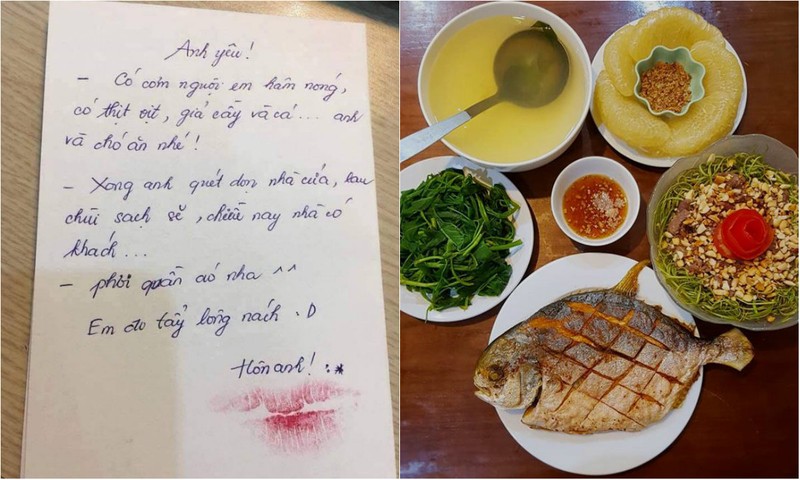 Anh yêu!
– Có cơm nguội em hâm nóng,
có thịt vịt, giả cầy và cá... anh
và chó ăn nhé!
– Xong anh quét dọn nhà cửa, lau
chùi sạch sẽ, chiều nay nhà có
khách...
– phơi quần áo nha ^^
Em đo tẩy lông nách :D
Hôn anh! :*